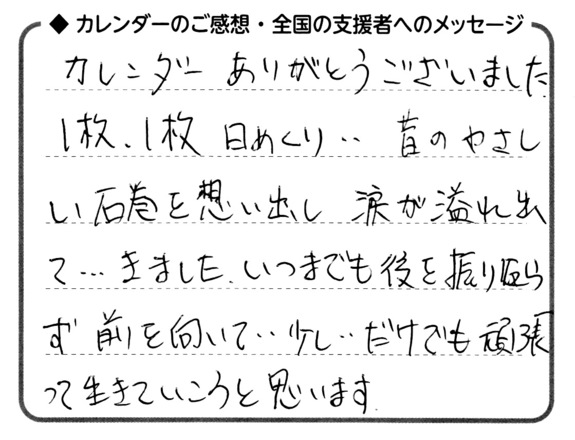 ◆ カレンダーのご感想・全国の支援者へのメッセージ
カレンダー ありがとうございました
1枚、1枚 日めくり‥ 昔のやさし
い石巻を想い出し 涙が溢れ出
て…きました、いつまでも後を振り返ら
ず 前を向いて‥少し‥だけでも頑張
って生きていこうと思います.